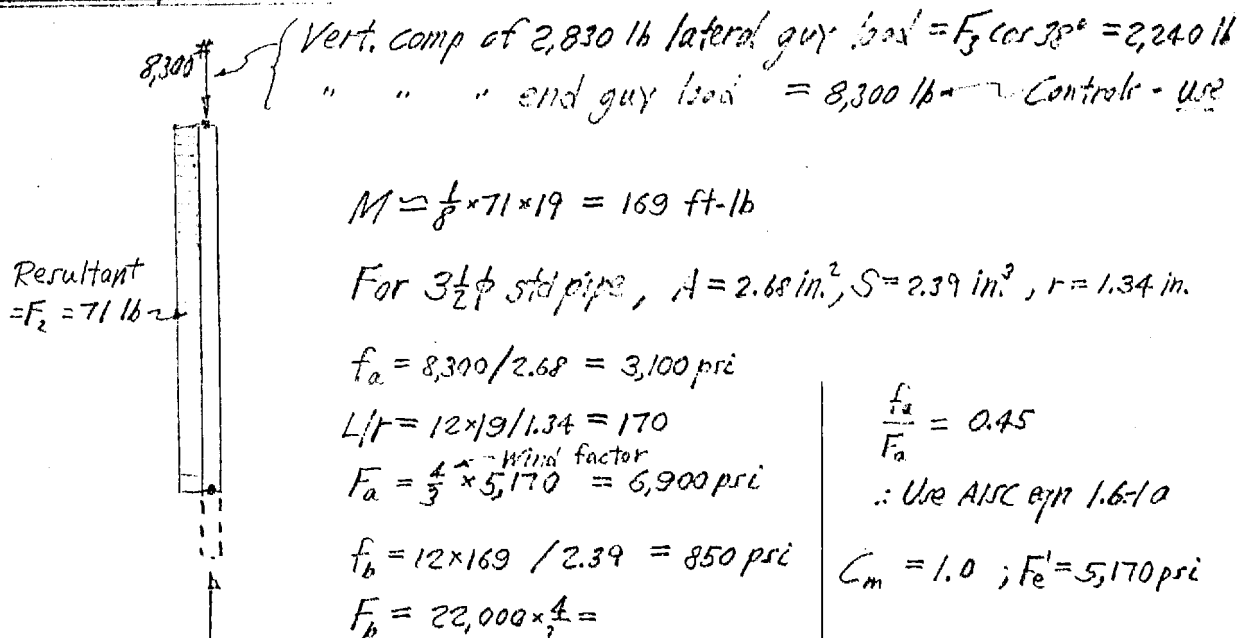 8,300# { Vert. comp of 2,830 lb lateral guy load = F₃ cos 38° = 2,240 lb
" " " end guy load = 8,300 lb Controls - use
M ≃ 1/8 × 71 × 19 = 169 ft-lb
Resultant
= F₂ = 71 lb
For 3 1/2 φ std pipe, A = 2.68 in.², S = 2.39 in.³, r = 1.34 in.
fa = 8,300/2.68 = 3,100 psi
L/r = 12×19/1.34 = 170
Wind factor
Fa = 4/3 × 5,170 = 6,900 psi
fb = 12×169 / 2.39 = 850 psi
Fb = 22,000 × 4/3 =
fa/Fa = 0.45
∴ Use AISC eqn 1.6-1a
Cm = 1.0 ; F'e = 5,170 psi